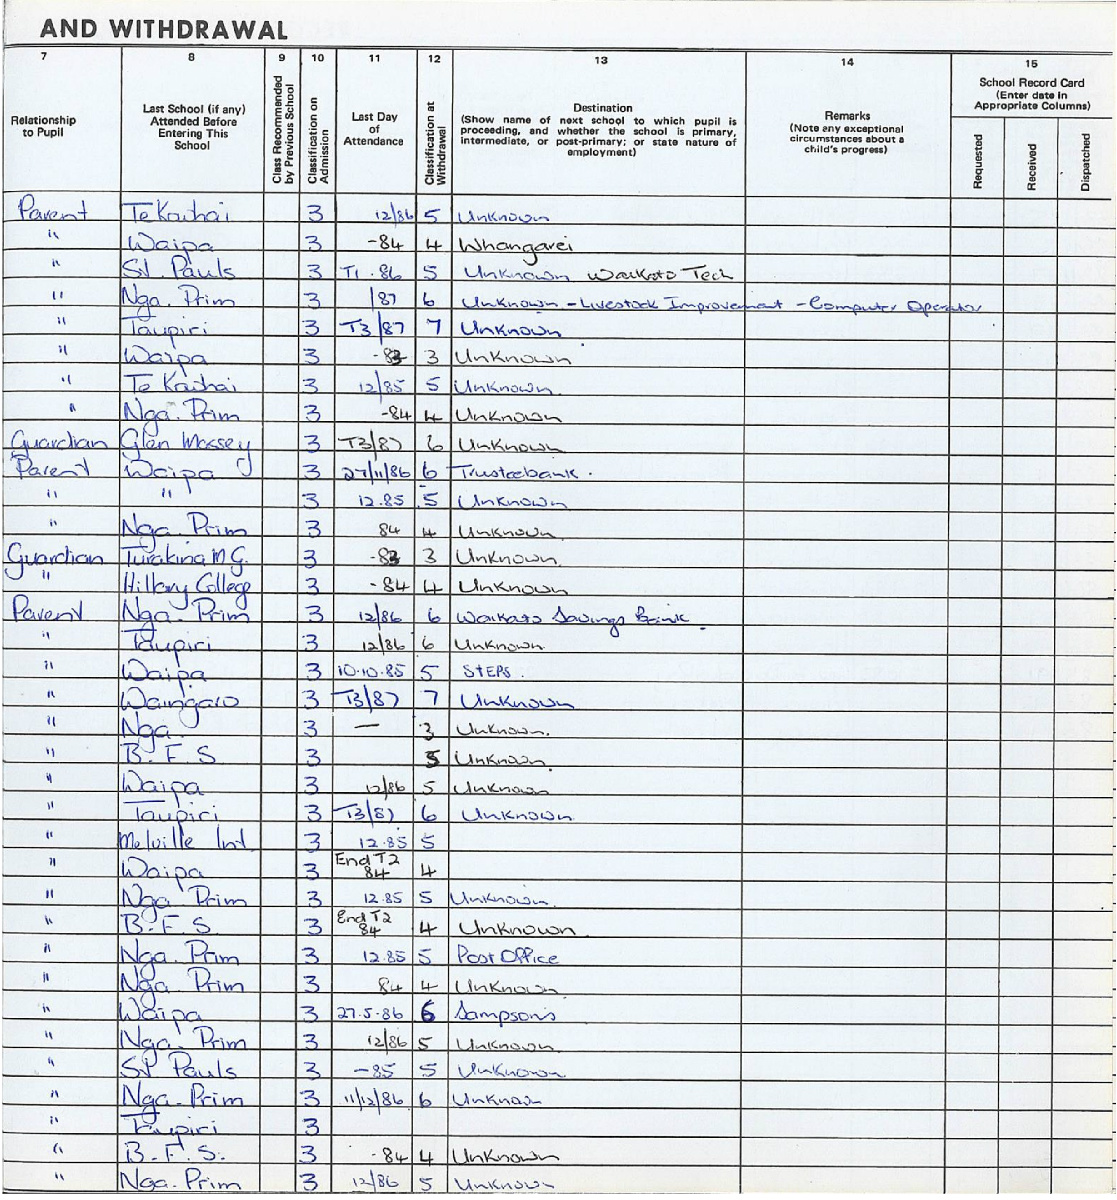 AND WITHDRAWAL
7 8 9 10 11 12 13 14 15
Relationship to Pupil
Last School (if any) Attended Before Entering This School
Class Recommended by Previous School
Classification on Admission
Last Day of Attendance
Classification at Withdrawal
Destination
(Show name of next school to which pupil is proceeding, and whether the school is primary, intermediate, or post-primary; or state nature of employment)
Remarks
(Note any exceptional circumstances about a child's progress)
School Record Card
(Enter date in Appropriate Columns)
Requested
Received
Dispatched
Parent Te Kowhai 3 12/86 5 Unknown
" Waipa 3 -84 4 Whangarei
" St Pauls 3 T1.86 5 Unknown Waikato Tech
" Nga. Prim 3 /87 6 Unknown - Livestock Improvement - Computer Operator
" Taupiri 3 T3/87 7 Unknown
" Waipa 3 -83 3 Unknown
" Te Kowhai 3 12/85 5 Unknown
" Nga. Prim 3 -84 4 Unknown
Guardian Glen Massey 3 T3/87 6 Unknown
Parent Waipa 3 27/11/86 6 Trusteebank.
" " 3 12.85 5 Unknown
" Nga Prim 3 84 4 Unknown
Guardian Turakina M G. 3 -83 3 Unknown
" Hillary College 3 -84 4 Unknown
Parent Nga. Prim 3 12/86 6 Waikato Savings Bank.
" Taupiri 3 12/86 6 Unknown
" Waipa 3 10.10.85 5 STEPS.
" Waingaro 3 T3/87 7 Unknown
" Nga. 3 — 3 Unknown.
" B.F.S 3 5 Unknown.
" Waipa 3 12/86 5 Unknown
" Taupiri 3 T3/87 6 Unknown
" Melville Int. 3 12.85 5
" Waipa 3 End T2 84 4
" Nga Prim 3 12.85 5 Unknown.
" B.F.S. 3 End T2 84 4 Unknown
" Nga. Prim 3 12.85 5 Post Office
" Nga Prim 3 84 4 Unknown
" Waipa 3 27.5.86 6 Sampsons
" Nga. Prim 3 12/86 5 Unknown
" St Pauls 3 -85 5 Unknown
" Nga. Prim 3 11/12/86 6 Unknown
" Taupiri 3
" B.F.S. 3 -84 4 Unknown
" Nga. Prim 3 12/86 5 Unknown